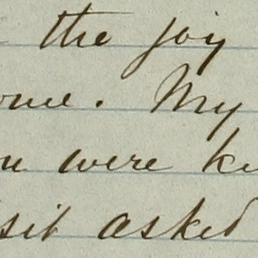 the joy
ome. My
were
sit asked